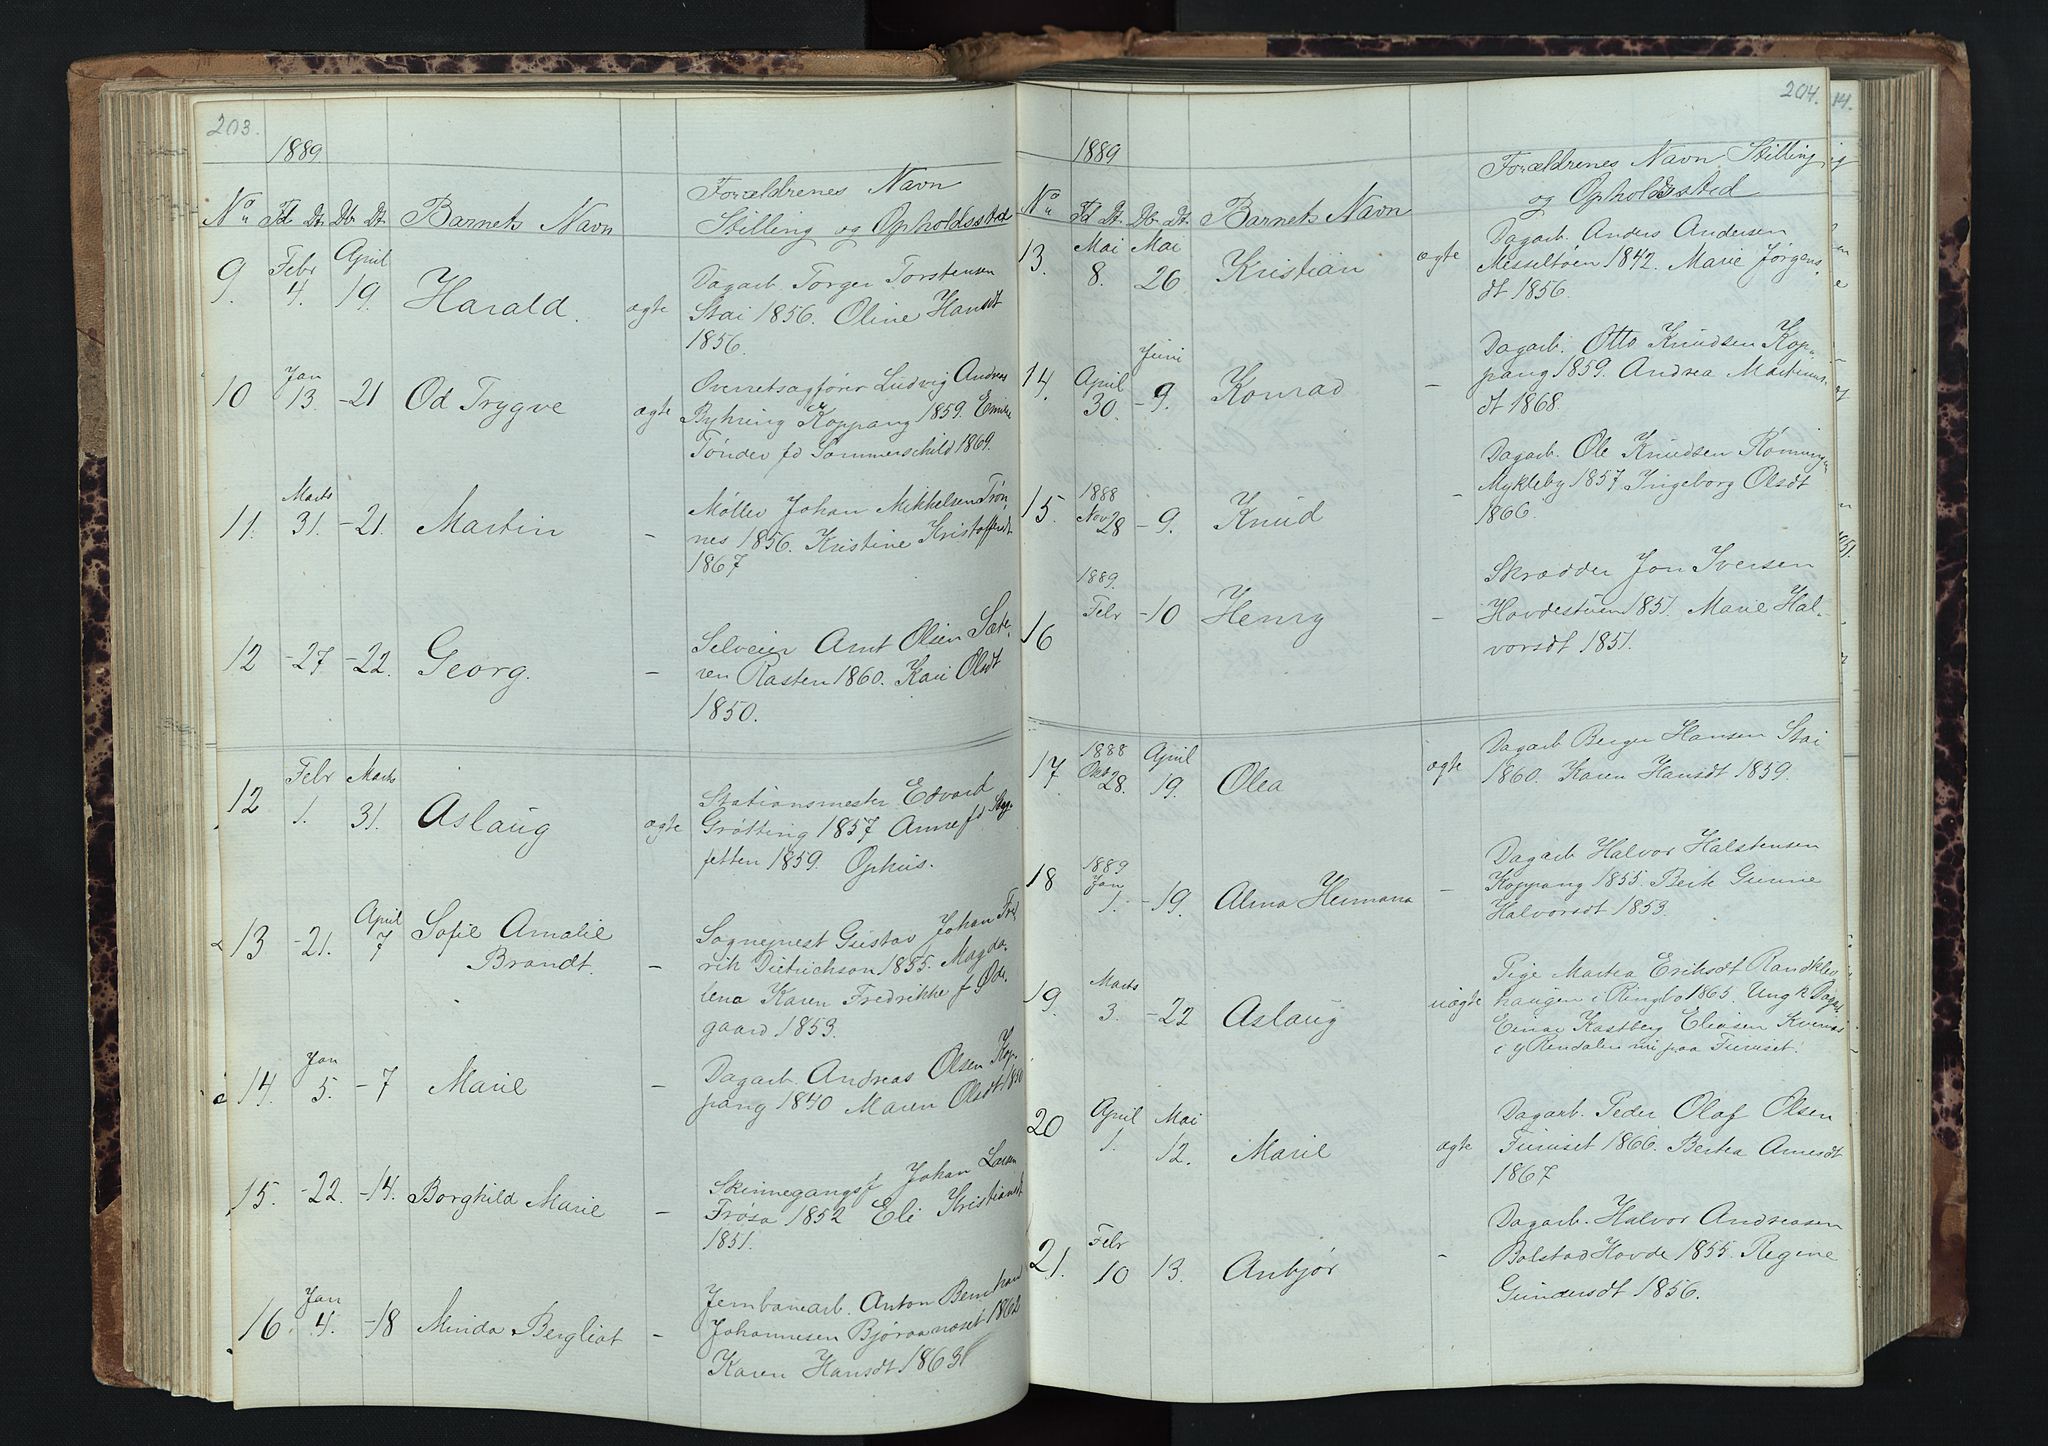 203.
1889
Forældrenes Navn
No Fd Dt. Db. Dt. Barnets Navn Stilling og Opholdssted
9. Febr 4. April 19. Harald. ægte Dagarb. Torger Torstensen
Stai 1856. Oline Hansdt
1856.
10 Jan 13. -21 Od Trygve ægte Overretsagfører Ludvig Andreas
Koppang 1859. Emilie
Tønder fd Sommerschild 1869.
11. Marts 31. -21. Martin - Møller Johan Mikkelsen Trøn
nes 1856. Kristine Kristoffersdt
1867
12 -27 -22. Georg. - Selveier Arnt Olsen Sæte
ren Rasten 1860. Kari Olsdt
1850.
12 Febr 1. Marts 31. Aslaug ægte Stationsmester Edvard
Grøtting 1857 Anne fd
1859. Ophus.
13 -21. April 7 Sofie Amalie
Brandt. - Sogneprest Gustav Johan Fred
rik Dietrichson 1855. Magda
lena Karen Fredrikke f Øde
gaard 1853.
14. Jan 5. -7 Marie - Dagarb. Andreas Olsen Kop-
pang 1840 Maren Olsdt 1850
15. -22. -14. Borghild Marie - Skinnegangsf Johan Larsen
Frøsa 1852 Eli Kristiansdt
1851.
16 Jan 4. -18 Minda Bergliot - Jernbanearb. Anton Bernhard
Johannesen Bjøraanæset 1862
Karen Hansdt 1863
204. 14.
1889
Forældrenes Navn Stilling
No Fd Dt. Db. Dt. Barnets Navn og Opholdssted
13. Mai 8. Mai 26 Kristian ægte Dagarb. Anders Andersen
Messeltøen 1842. Marie Jørgens
dt 1856.
14. April 30. Juni -9. Konrad - Dagarb. Otto Knudsen Kop-
pang 1859. Andrea Martinus-
dt 1868.
15. 1888 Nov 28 -9. Knud - Dagarb. Ole Knudsen Rønningen
Mykleby 1857 Ingeborg Olsdt
1866
16 1889. Febr -10 Henry - Skrædder Jon Iversen
Hovdestuen 1851. Marie Hal-
vorsdt 1851.
17. 1888 Okt 28. April 19. Olea ægte Dagarb Berger Hansen Stai
1860. Karen Hansdt 1859.
18 1889 Jan 1. -19. Alma Hermana - Dagarb Halvor Halstensen
Koppang 1855. Berit Gunne
Halvorsdt 1853.
19. Marts 3. -22 Aslaug uægte Pige Martea Eriksdt Randklev
haugen i Ringbo 1865. Ungk Dagarb
Einar Kastberg Eliasen Kvernes
i y Rendalen nu paa Furuset.
20 April 1. Mai 12. Marie ægte Dagarb. Peder Olaf Olsen
Furuset 1866. Bertea Arnesdt
1867
21. Febr 10 13. Anbjør - Dagarb. Halvor Andreasen
Bolstad Hovde 1855. Regine
Gundersdt 1856.